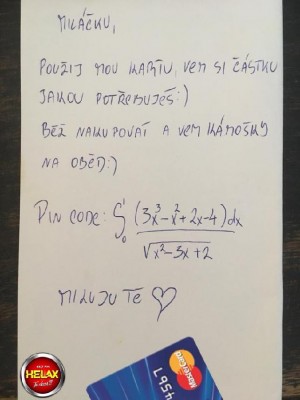 MILÁČKU,
POUŽIJ MOU KARTU, VEM SI ČÁSTKU
JAKOU POTŘEBUJEŠ:)
BĚŽ NAKUPOVAT A VEM KÁMOŠKY
NA OBĚD:)
PIN CODE: ∫₀¹ (3x³-x²+2x-4)dx / √(x²-3x+2)
MILUJU TĚ ♡
HELAX
MasterCard